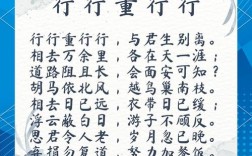 行行重行行
行行重行行，与君生别离。
相去万余里，各在天一涯；
道路阻且长，会面安可知？
胡马依北风，越鸟巢南枝。
相去日已远，衣带日已缓；
浮云蔽白日，游子不顾反。
思君令人老，岁月忽已晚。
弃捐勿复道，努力加餐饭。